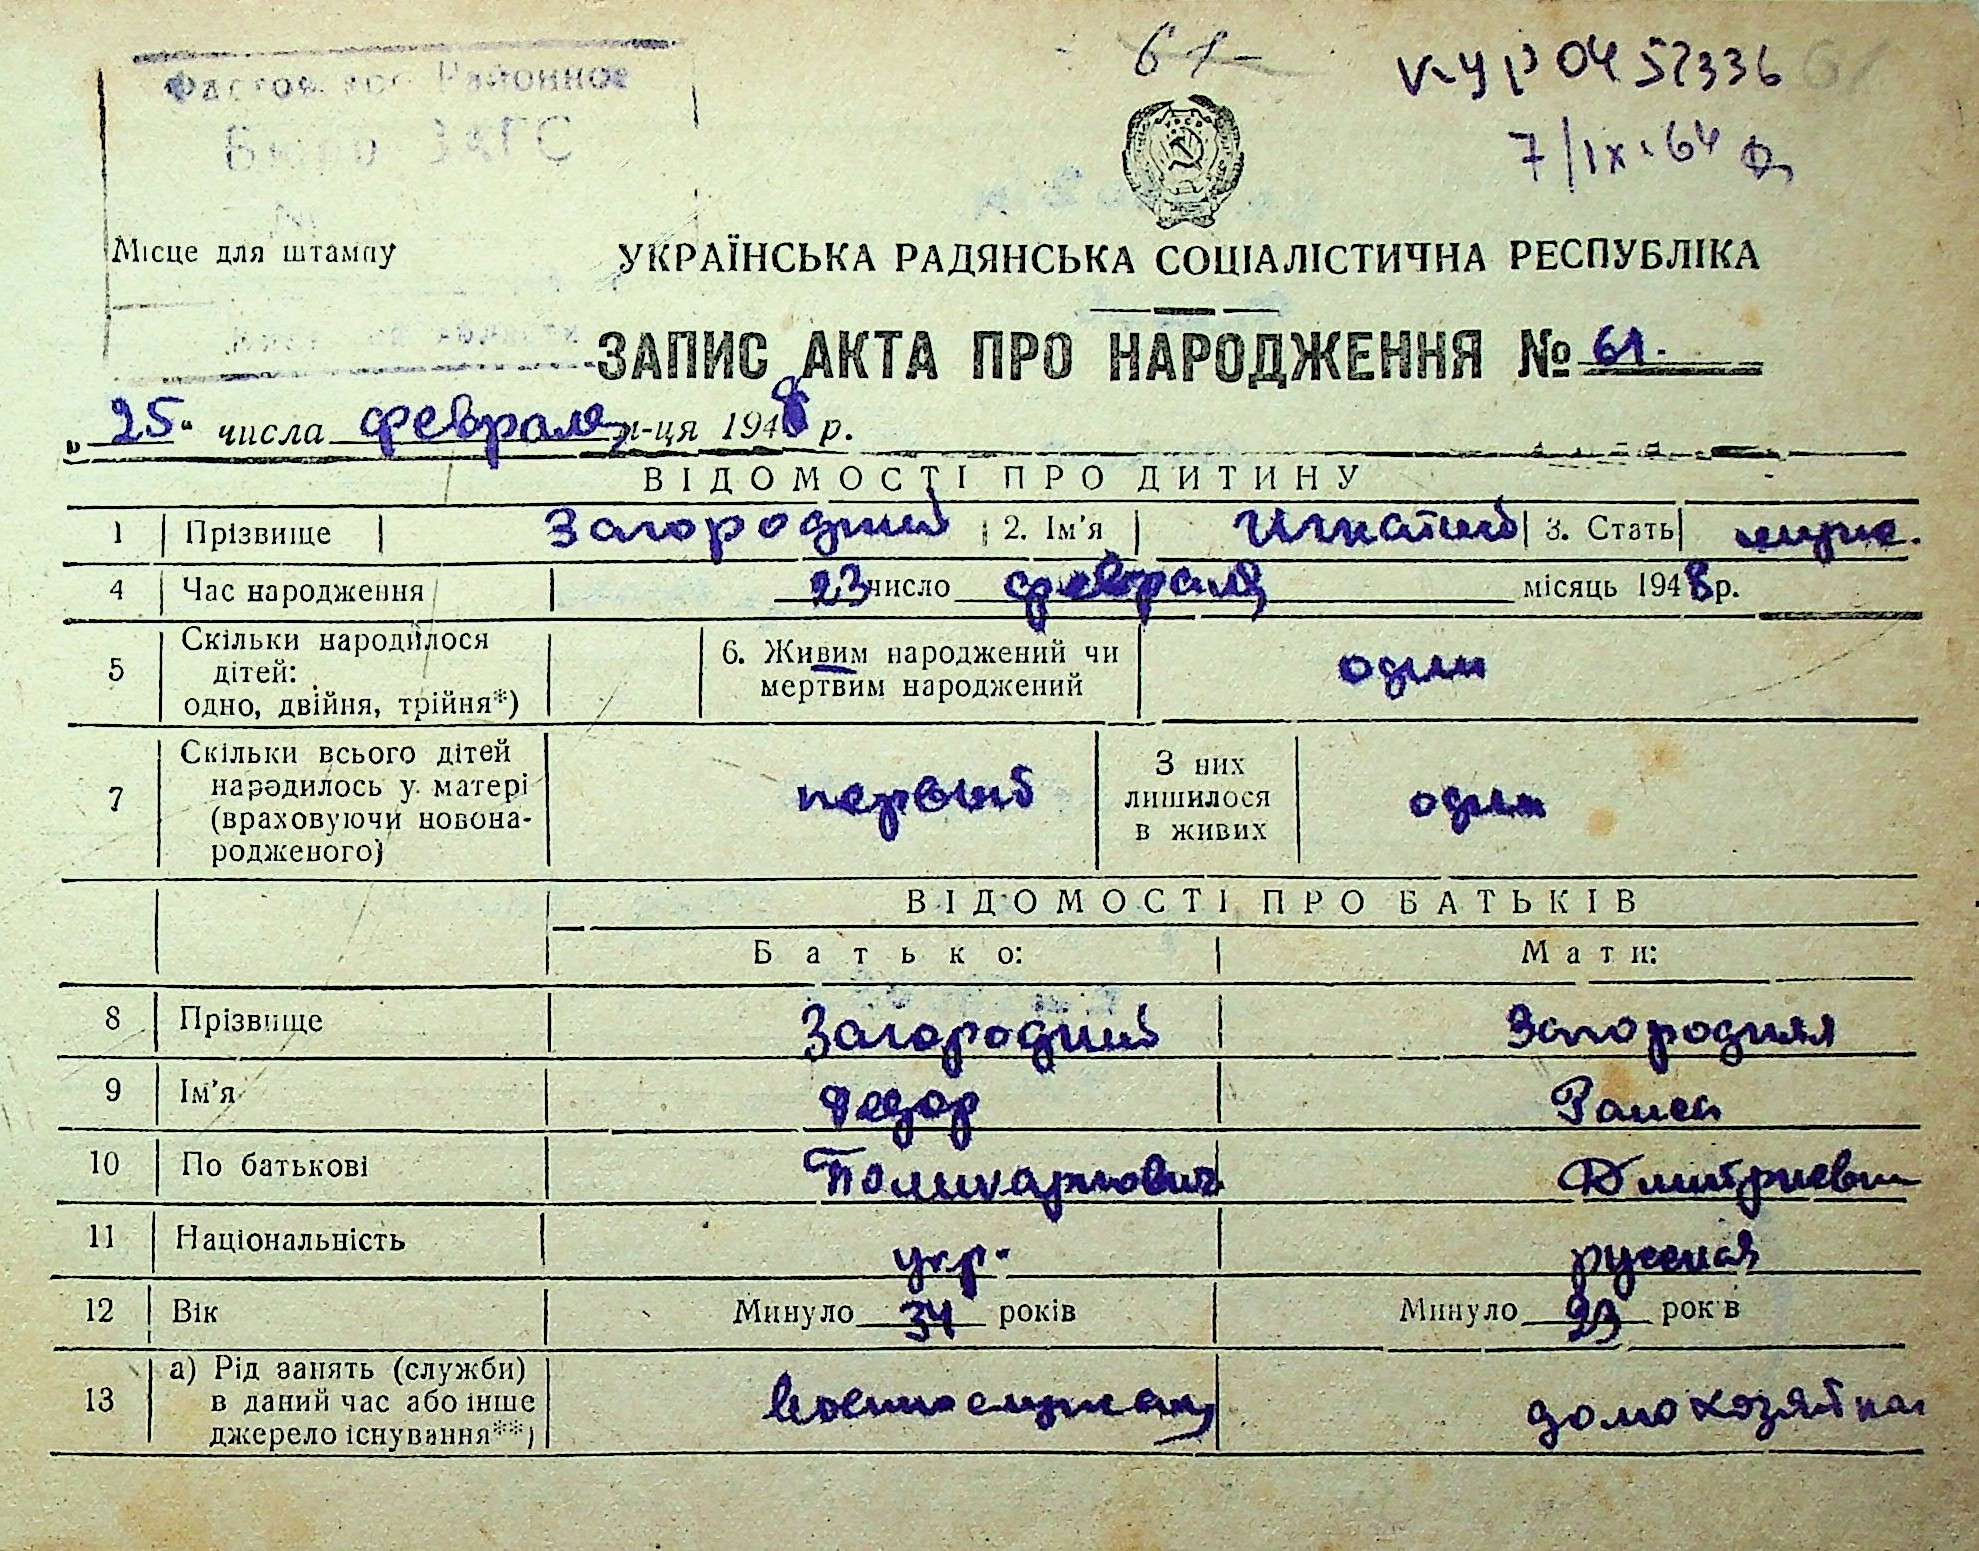 61-
Районное
Бюро ЗАГС
Місце для штампу
УРСР 0457336
7/IX-64
УКРАЇНСЬКА РАДЯНСЬКА СОЦІАЛІСТИЧНА РЕСПУБЛІКА
ЗАПИС АКТА ПРО НАРОДЖЕННЯ № 61.
„25“ числа февраля м-ця 1948 р.
ВІДОМОСТІ ПРО ДИТИНУ
1 Прізвище Загородний 2. Ім’я Игнатий 3. Стать муж.
4 Час народження 23 число февраля місяць 1948 р.
5 Скільки народилося дітей: одно, двійня, трійня*) 6. Живим народжений чи мертвим народжений один
7 Скільки всього дітей народилось у матері (враховуючи новонародженого) первый З них лишилося в живих один
ВІДОМОСТІ ПРО БАТЬКІВ
Батько: Мати:
8 Прізвище Загородний Загородняя
9 Ім’я Федор Раиса
10 По батькові Поликарпович Дмитриевн
11 Національність укр. русская
12 Вік Минуло 34 років Минуло 23 років
13 а) Рід занять (служби) в даний час або інше джерело існування**) Военнослужащ домохозяйка